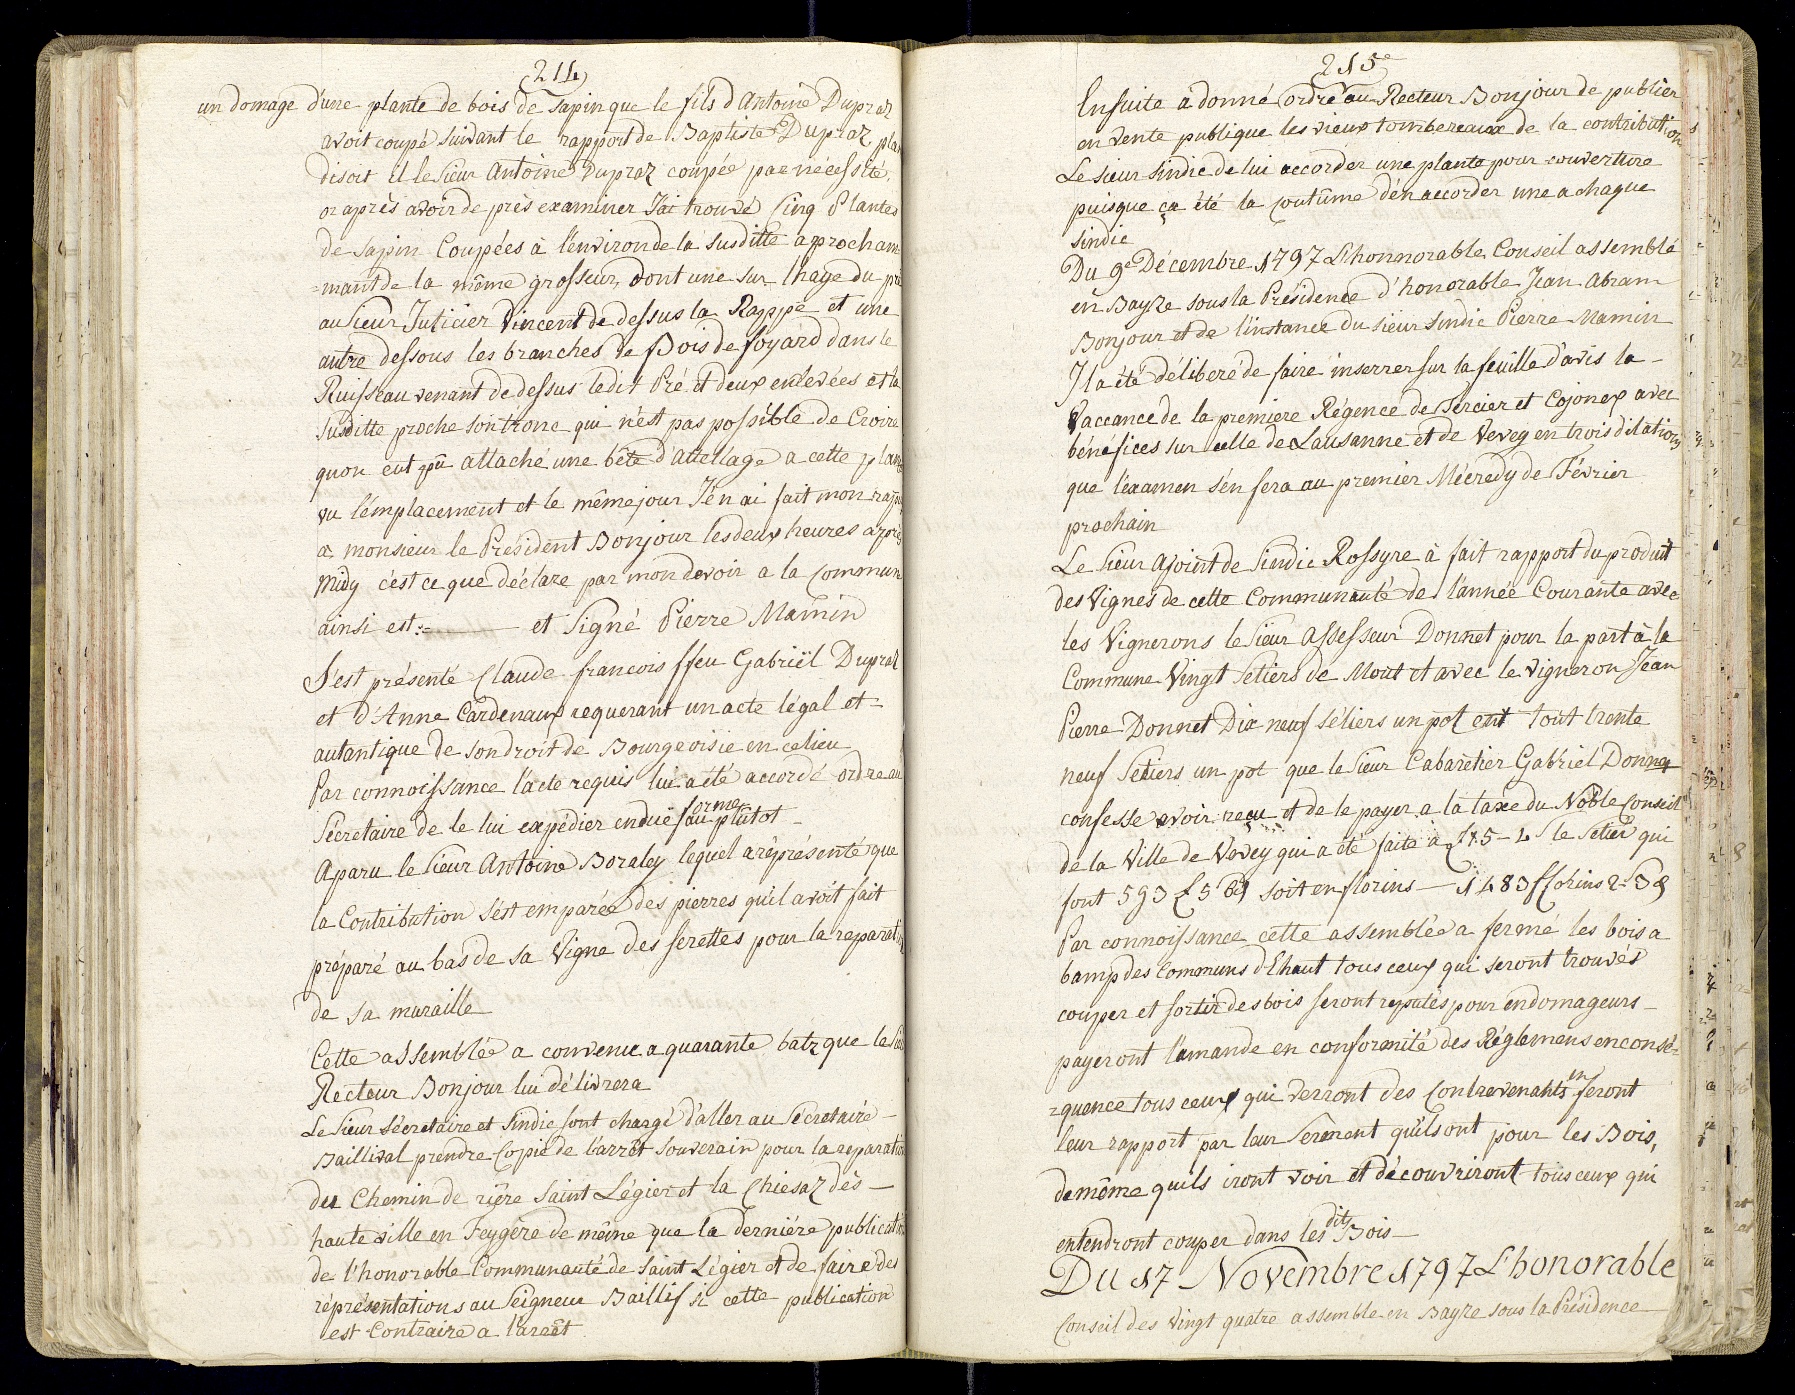 214
un domage d'une plante de bois de sapin que le fils d'Antoine Dupraz
avoit coupé suivant le rapport de Baptiste Dupraz
disoit il le Sieur Antoine Dupraz coupée par nécessité,
or après avoir de près examiner J'ai trouvé Cinq Plantes
de sapin Coupées à l'environ de la susditte aprocham
=mant de la même grosseur, dont une sur lhage du pré
au Sieur Juticier Vincent de dessus la Rappe et une
autre dessous les branches de Bois de foyard dans le
Ruisseau venant de dessus ledit Pré et deux enlevées et la
susditte proche son tronc qui n'est pas possible de Croire
quon eut pû attaché une bête d'attellage a cette plan
vu l'emplacement et le même jour J'en ai fait mon rapp
a monsieur le Président Bonjour les deux heures après
midy c'est ce que déclare par mon devoir a la Commun
ainsi est:= et Signé Pierre Mamin
S'est présenté Claude francois ffeu Gabriël Dupraz
et d'Anne Cardenaux requerant un acte légal et=
autantique de son droit de Bourgeoisie en ce lieu
Par connoissance l'acte requis lui a été accordé ordre au
Sécretaire de le lui expédier en duë forme au plûtot_
Aparu le Sieur Antoine Boraley lequel a réprésenté que
la Contribution s'est emparée des pierres qu'il avoit fait
préparé au bas de sa Vigne des serettes pour la reparati
de sa muraille
Cette assemblée a convenu a quarante batz que le Si
Recteur Bonjour lui délivrera
Le Sieur Sécretaire et Sindic sont chargé d'aller au Sécretaire_
Baillival prendre Copie de l'arrêt Souverain pour la reparation
du Chemin de rière Saint Légier et la Chiesaz dès_
haute ville en Feygère de même que la derniére publicati
de l'honorable Communauté de Saint Légier et de faire des
réprésentations au Seigneur Baillif si cette publication
est Contraire a l'arrêt
215
Ensuite a donné ordre au Recteur Bonjour de publier
en vente publique les vieux tombereaux de la contribution
Le sieur Sindic de lui accorder une plante pour couverture
puisque ça été la Coutûme d'en accorder une a chaque
sindic
Du 9e Décembre 1797 L'honnorable Conseil assemblé
en Bayre sous la Présidence d'honorable Jean Abram
Bonjour et de l'instance du siëur Sindic Pierre Mamin
Il a été déliberé de faire inserrer sur la feüille d'avis la_
Vaccance de la premiere Régence de Tercier et Cojonex avec
bénéfices sur celle de Lausanne et de Vevey en trois dilations
que l'éxamen s'en fera au premier Mécredy de Février
prochain
Le Sieur Ajoint de Sindic Rossyre à fait rapport du produit
des Vignes de cette Communauté de l'année Courante avec
les Vignerons le Sieur Assesseur Donnet pour la part à la
Commune Vingt Setiers de Mout et avec le vigneron Jean
Pierre Donnet Dix neuf sétiers un pot ent tout trente
neuf Setiers un pot que le Sieur Cabaretier Gabriel Donnet
confesse avoir reçu et de le payer a la taxe du Noble Conseil
de la Ville de Vevey qui a été faite à le Setier qui
font 593 soit en florins_ 1483 fflorins
Par connoissance cette assemblée a fermé les bois a
bamp des Communs d'Ehaut tous ceux qui seront trouvés
couper et sortir des bois seront reputés pour endomageurs_
payeront l'amande en conformité des Réglemens en consé=
=quence tous ceux qui verront des Contrevenants en feront
leur rapport par leur Serment qu'ils ont pour les Bois,
de même quils iront voir et découvriront tous ceux qui
entendront couper dans les dits Bois_
Du 17_ Novembre 1797 L'honorable
Conseil des Vingt quatre assemblé en Bayre sous la Présidence